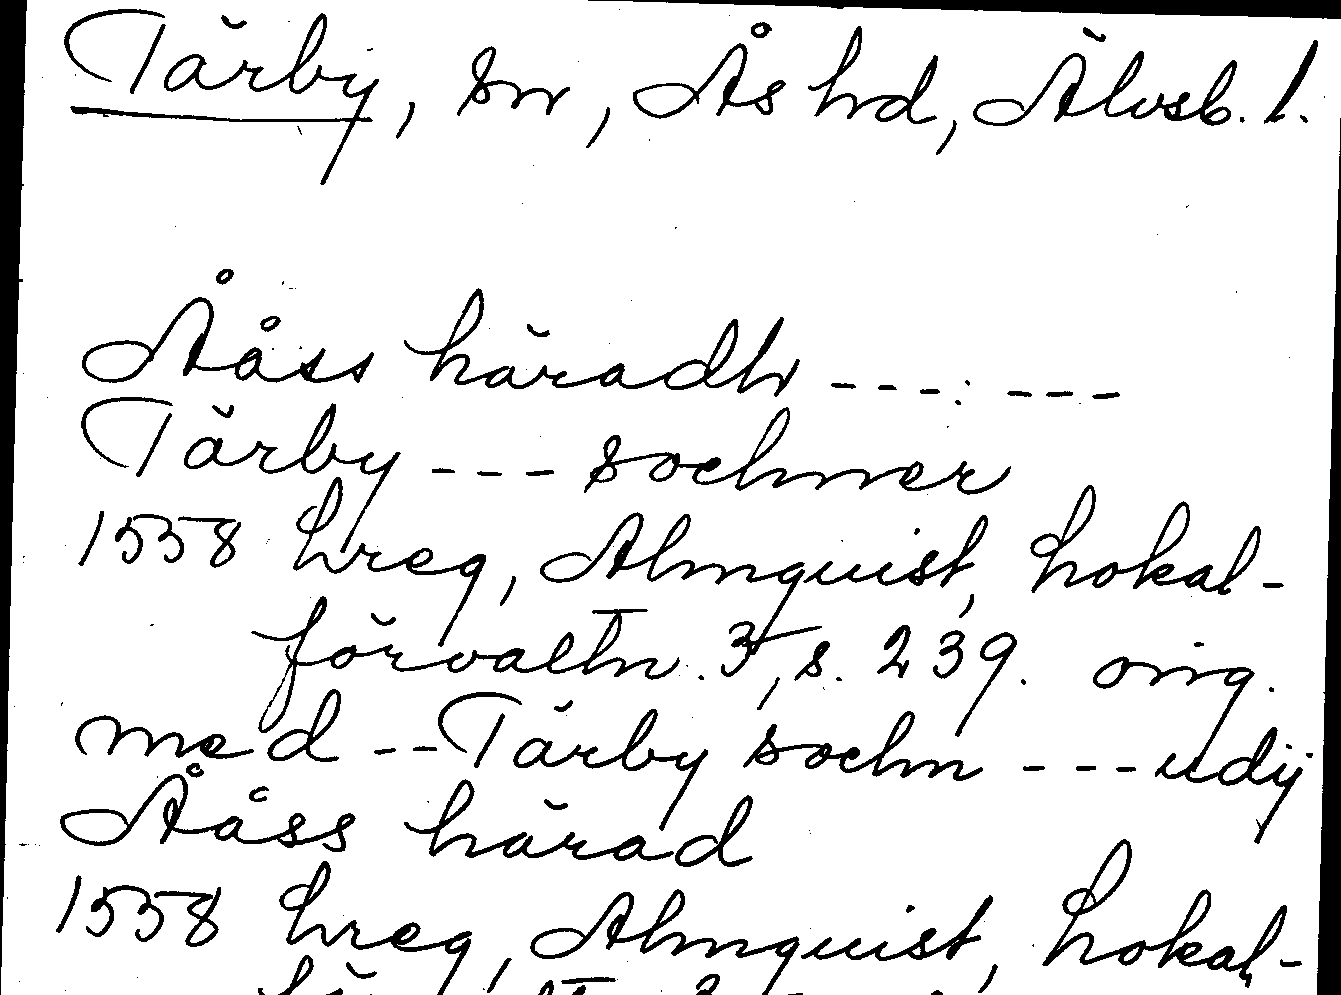 Tärby, sn, Ås hd, Älvsb. l.
Ååss häradh ---:---
Tärby --- sochner
1558 hreg, Almquist, Lokal-
förvaltn. 3, s. 239. orig.
med -- Tärby sochn --- udij
Ååss härad
1558 hreg, Almquist, Lokal-